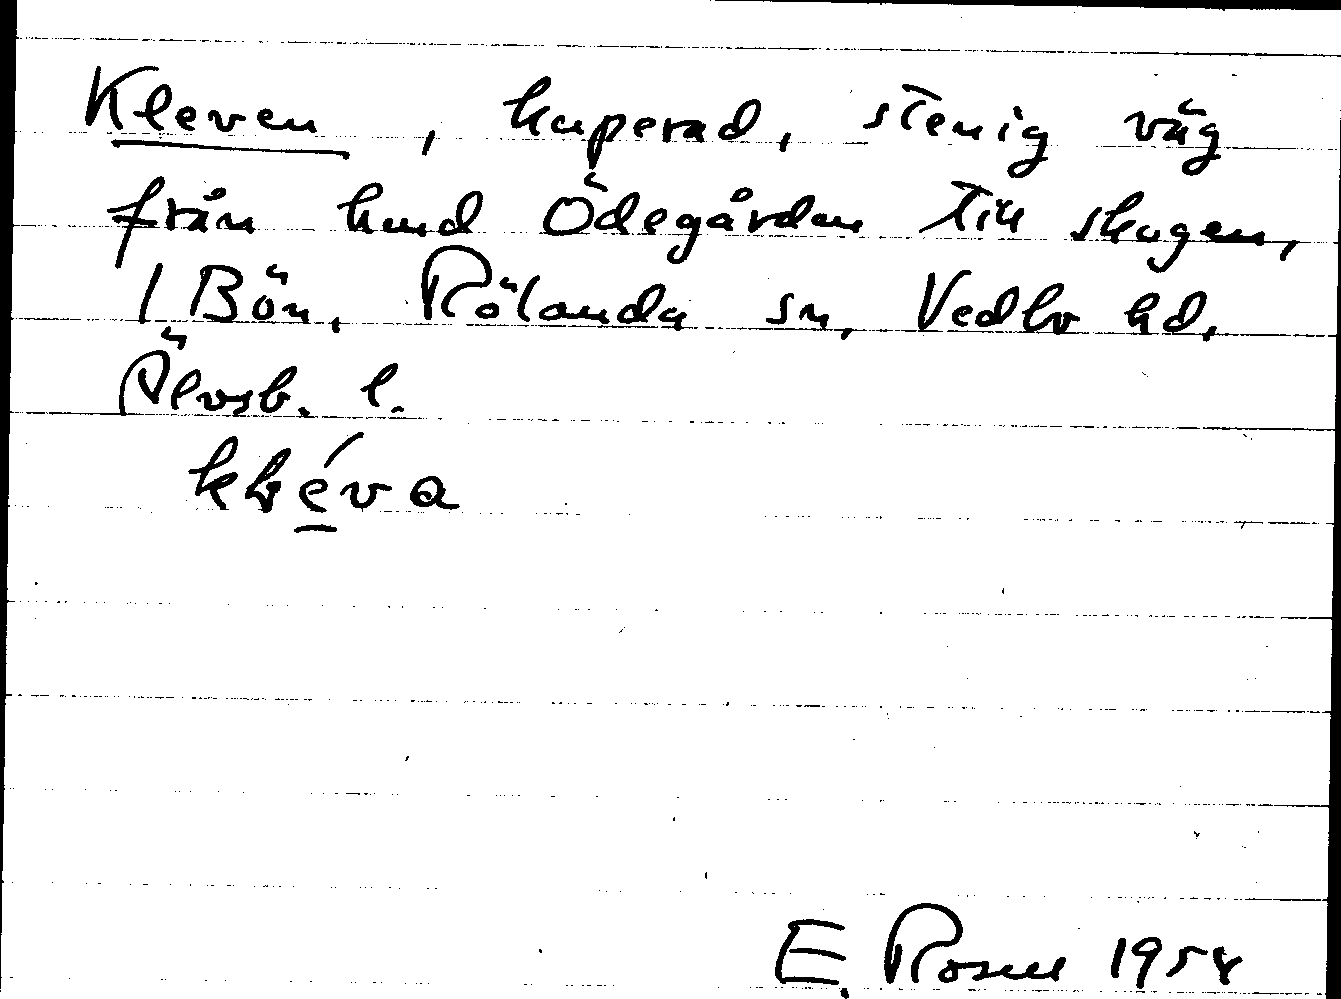 Kleven, kuperad, stenig väg
från hmd Ödegården till skogen,
1 Bön, Rölanda sn, Vedbo hd.
Älvsb. l.
kléva
E. Rosell 1954